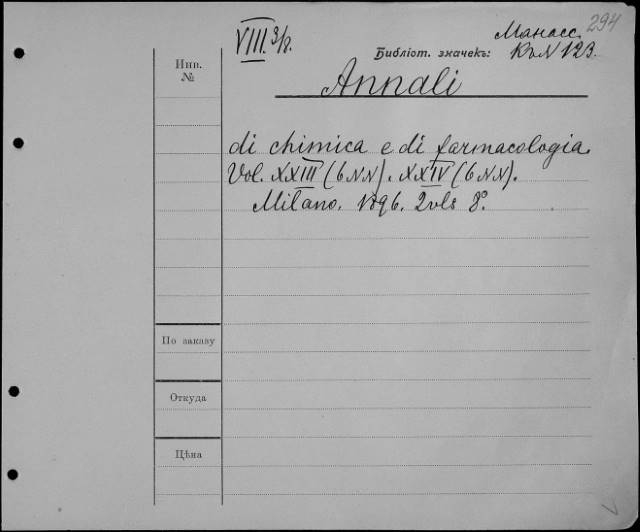 294
VIII. 3/8.
Манасс.
Библіот. значекъ: К. N 123.
Инв. №
Annali
di chimica e di farmacologia.
Vol. XXIII (6 NN). XXIV (6 NN).
Milano. 1896. 2 vls 8°.
По заказу
Откуда
Цѣна